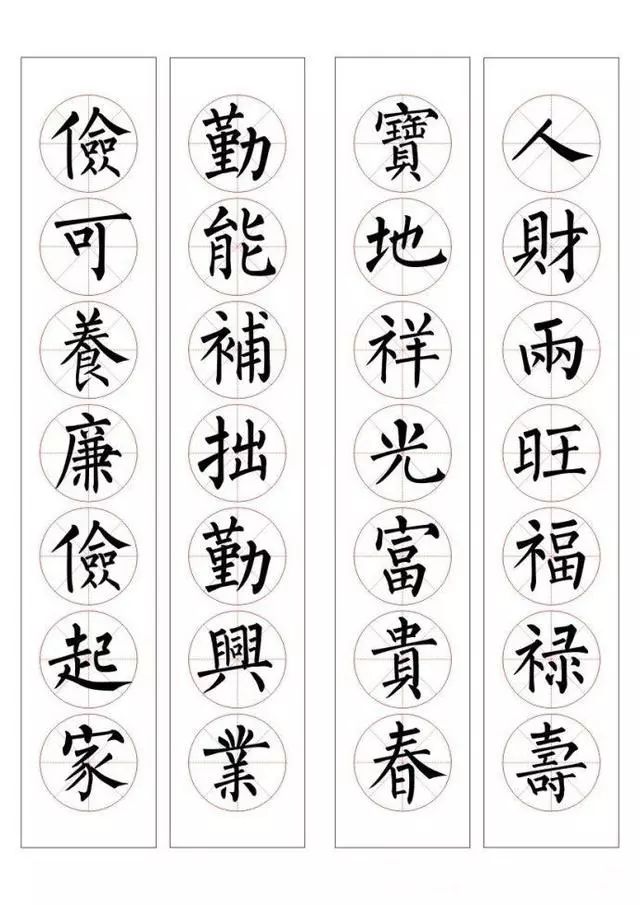 人財兩旺福禄壽
寶地祥光富貴春
勤能補拙勤興業
儉可養廉儉起家